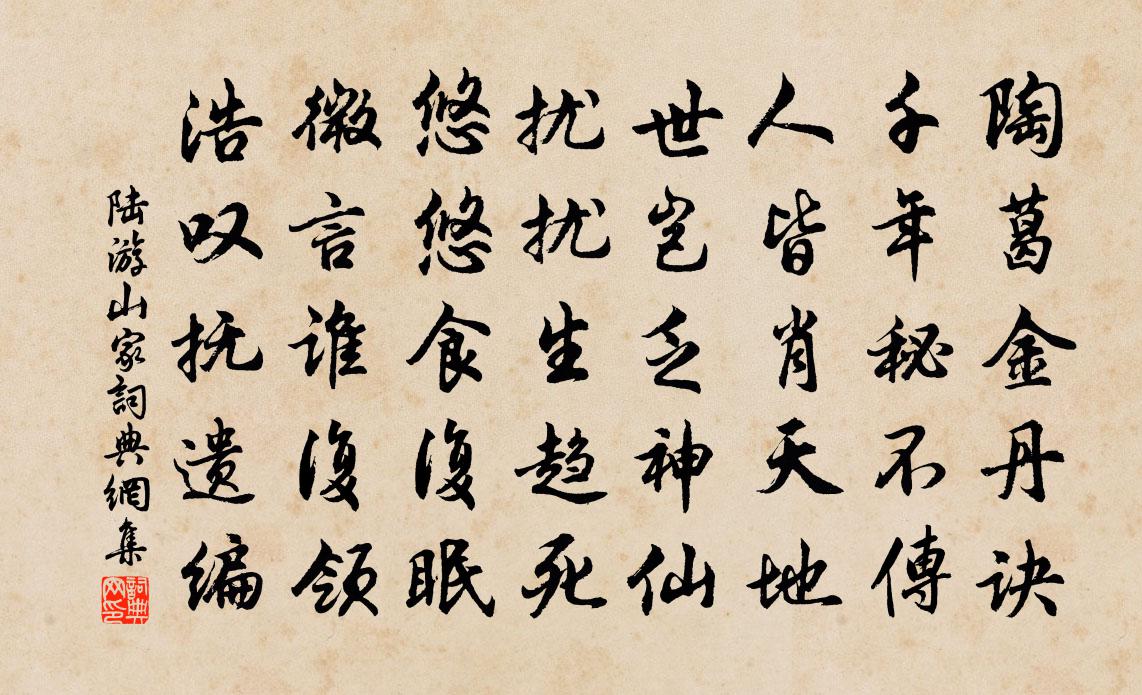 陶葛金丹诀
千年秘不傳
人皆肖天地
世岂乏神仙
扰扰生趋死
悠悠食復眠
微言谁復领
浩叹抚遗编
陆游山家詞典網集
詞典网印